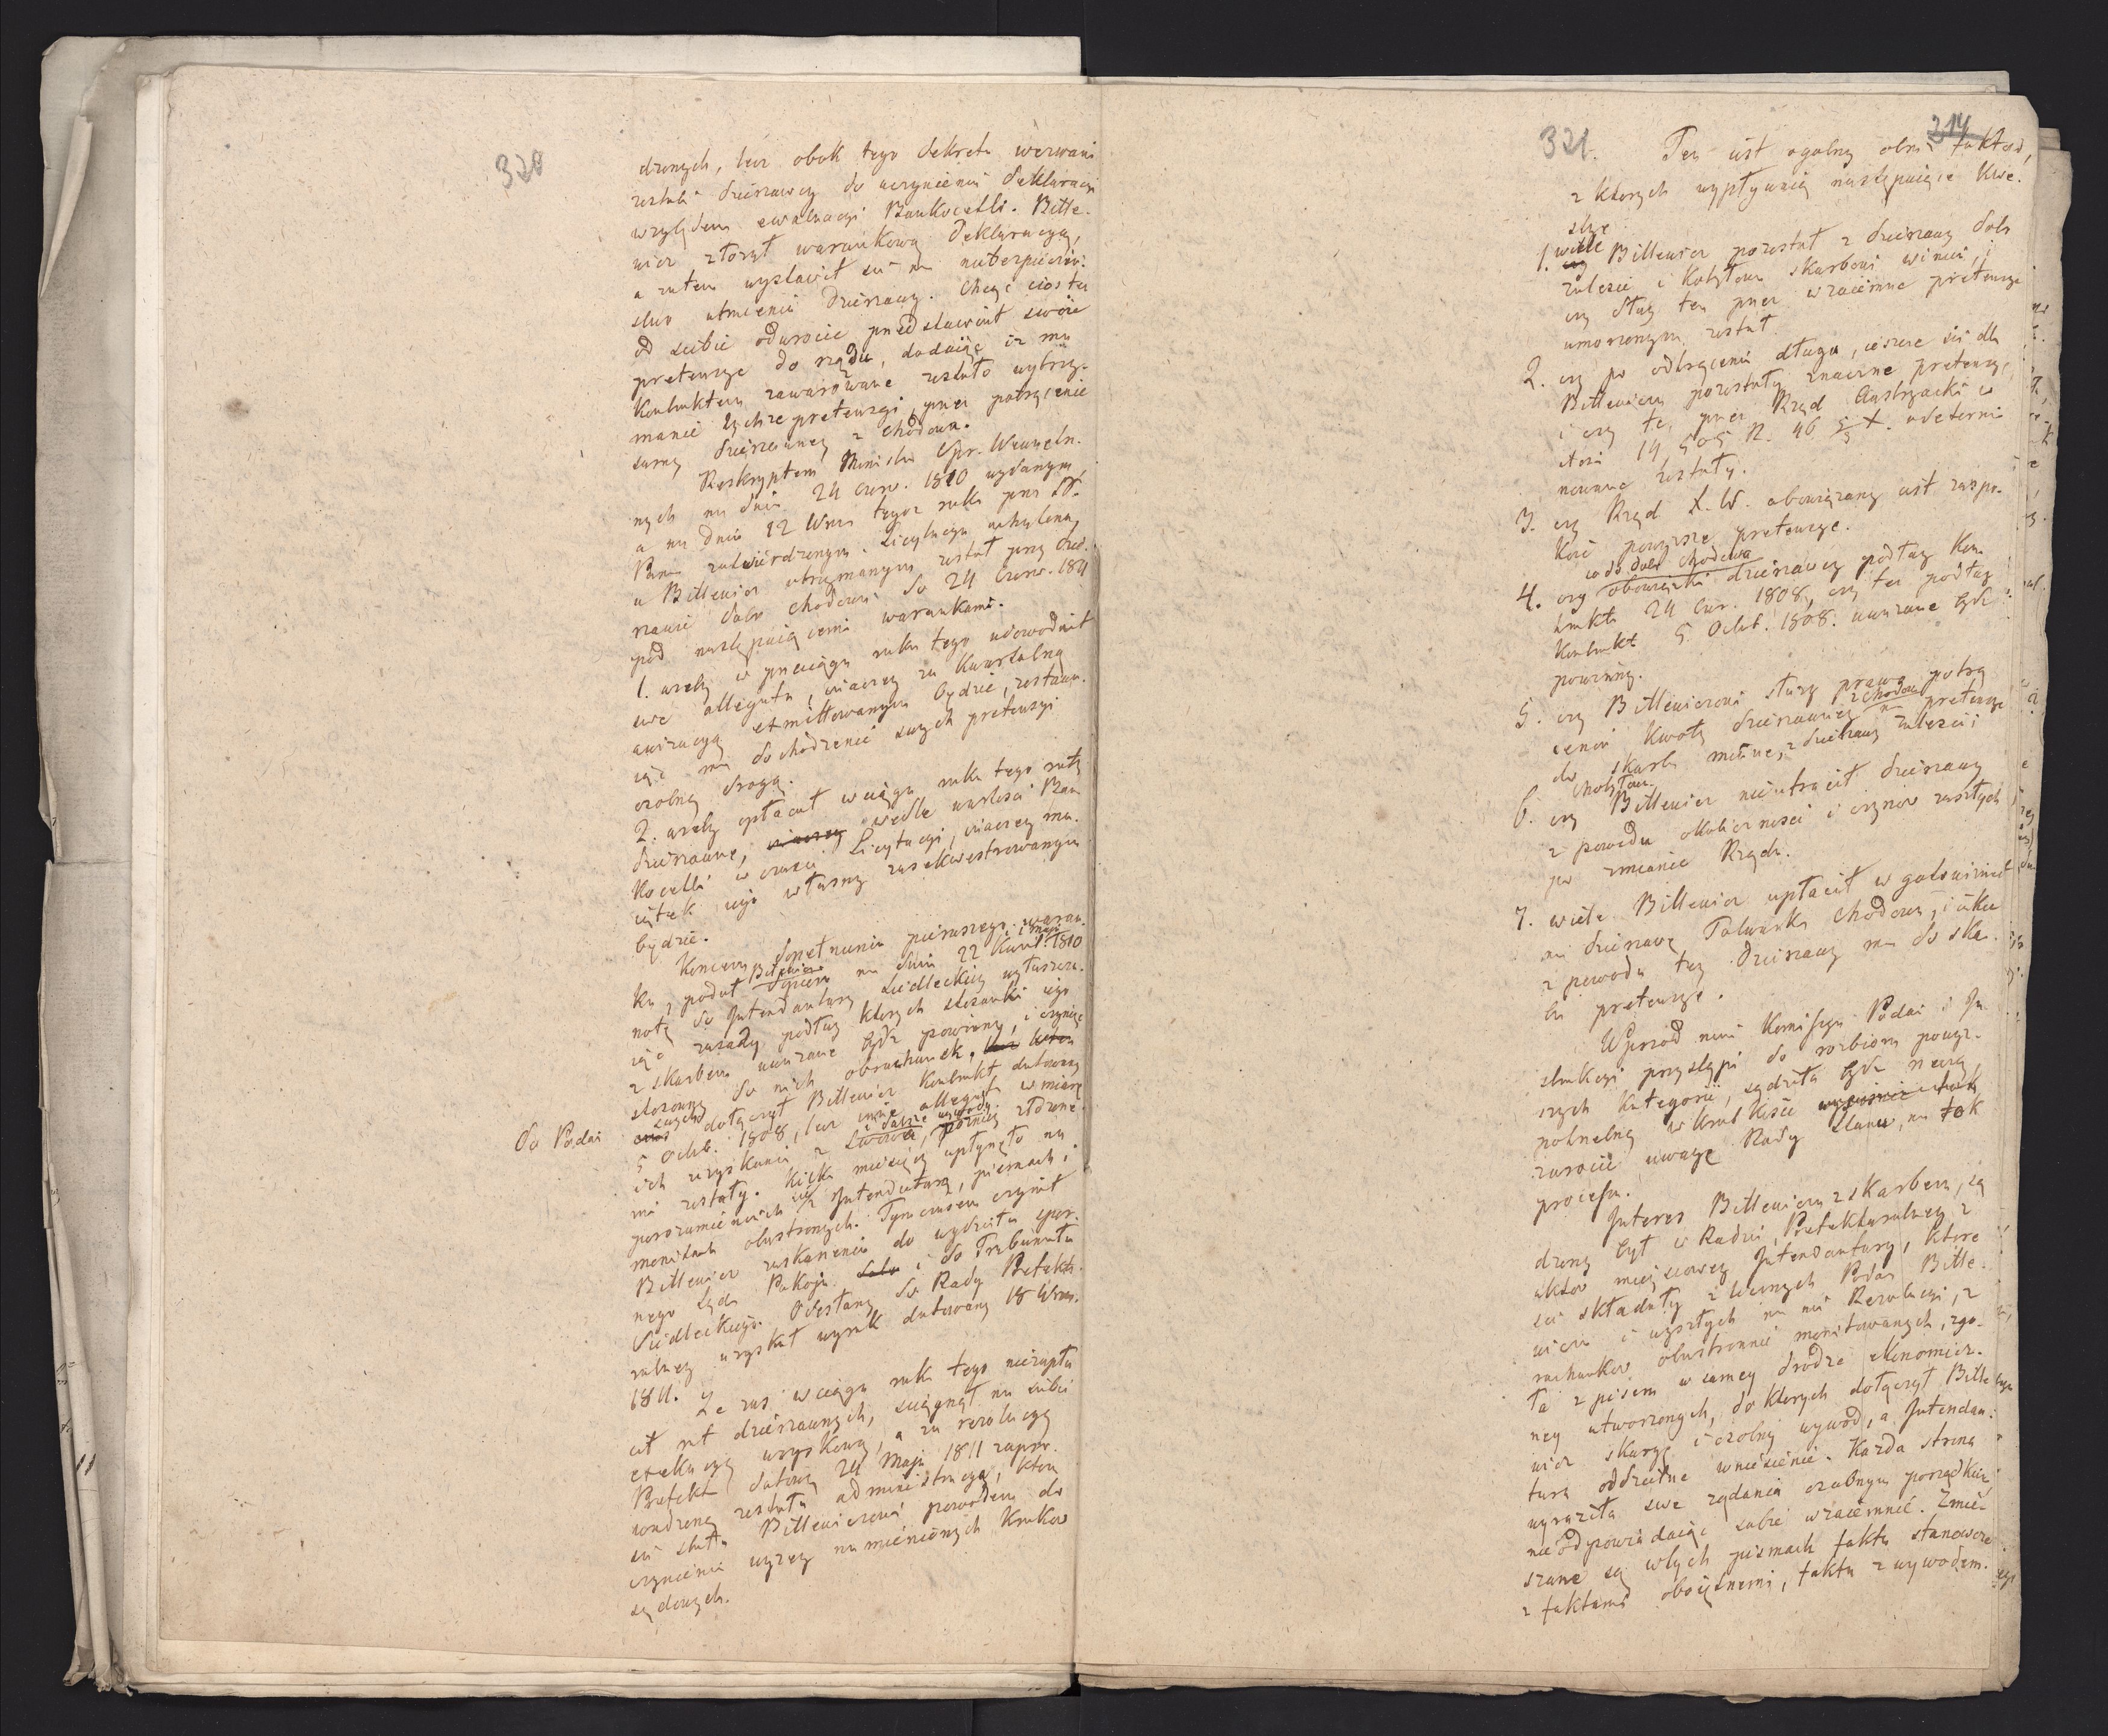 320
drzonych, lecz obok tego dekretu wezwani
zostali dzierzawcy do uczynienia deklaracyi
względem ewaluacyi Bankocetli. Bitte-
wicz złożył warunkową deklaracyą,
a zatem wystawił się na niebezpieczeń-
stwo utracenia dzierzawy. Chcąc cios ten
od siebie odwrócić przedstawiał swoie
pretensye do rządu, dodaiąc iz mu
kontraktem zawarowane zostało wytrzy-
manie tychże pretensyi, przez potrącenie
sumy dzierzawney z Chodowa.
Reskryptem Ministra Spr. Wewnętrz-
nych na dniu 24 Czerw. 1810 wydanym,
a na dniu 12 Wrzes tegoz roku przez
Pana zatwierdzonym. Licytacya uchylona,
a Bittewicz utrzymanym został przy dzier-
zawie dobr Chodowa do 24 Czerw. 1811
pod następuiącemi warunkami.
1. azeby w przeciągu roku tego udowodnił
swe allegata, inaczey za kwartalną
awizacyą exmittowanym będzie, zostawu-
iąc mu dochodzenie swych pretensyi
osobną drogą.
2. azeby opłacał w ciągu roku tego raty
dzierzawne, inaczey wedle wartosci Ban
kocetli w czasie Licytacyi, inaczey ma-
iątek iego własny zasekwestrowanym
będzie.
Koncem dopełnienia pierwszego warun-
ku, podał Bittewicz dopiero na dniu 22 Kwiet. i Maja 1810
notę do Intendantury Siedleckiey wyłuszcza-
iąc zasady podług ktorych stosunki iego
z skarbem uwazane bydz powinny, i czyniąc
stosowny do nich obrachunek.
Do Podań
swych dołączył Bittewicz kontrakt datowany
5 Octob. 1808, lecz inne allegata w miarę
ich uzyskania z Lwowa i dalsze wywody, pozniey złozone-
mi zostały. Kilka miesięcy upłynęło na
porozumieniach się z Intendenturą, pismach i
monitach obustronnych. Tymczasem czynił
Bittewicz zaskarzenia do wydziału spor-
nego Sądu Pokoju i do Trybunału
Siedleckiego. Odesłany do Rady Prefektu-
ralney uzyskał wyrok datowany 18 Wrzes.
1811. Ze zas w ciągu roku tego niezapła
cił rat dzierzawnych, sciągnął na siebie
exekucyą woyskową, a za rezolucyą
Prefekta datową 24 Maja 1811 zapro-
wadzoną została administracya, ktora
się stała Bittewiczowi powodem do
czynienia wyzey namienionych krokow
sądowych.
321. 214
Ten iest ogolny obraz faktow,
z ktorych wypływaią następuiące kwe-
stye
1. wiele Bittewicz pozostał z dzierzawy dobr
Zalesie i Kobytow skarbowi winien, i
czy dług ten przez wzaiemne pretensye
umorzonym został.
2. czy po odtrąceniu długu, ieszcze się dla
Bittewicza pozostały znaczne pretensye,
i czy te, przez Rząd Austryacki w
ktosi 14 505 R. 46 5/9 X. ndeterni
nowane zostały.
3. czy Rząd X. W. obowiązany iest zaspo-
koić powyzsze pretensye.
4. czy co do dobr Chodowa obowiązki dzierzawcy podług kon-
traktu 24 Czer. 1808, czy tez podług
kontrakt 5. Octob. 1808. uwazane bydz
powinny.
5. czy Bittewiczowi słuzy prawo potrą
cenia kwoty dzierzawney z Chodowa na pretensye
do skarbu miane, z dzierzawy Zalesia i
Chobytowa
6. czy Bittewicz nieutracił dzierzawy
z powodu okolicznosci i czynow zaszłych
po zmianie Rządu.
7. wiele Bittewicz upłacił w gotowiznie
na dzierzawę Folwarku Chodowa, i iakie
z powodu tey dzierzawy ma do skar-
bu pretensye.
Wprzod nim Komissya Podań i In
strukcyi przystąpi do rozbioru powyz-
szych kategorii, sądziła bydz rzeczą
potrzebną w krotkości
zwrocić uwagę Rady Stanu, na tok
processu.
Interes Bittewicza z skarbem, są
dzony był w Radzie Prefekturalney z
aktow mieyscowey Intendantury, ktore
się składały z licznych Podań Bitte-
wicza i wyszłych na nie Rezolucyi, z
rachunkow obustronnie monitowanych, zgo-
ła z pisem w samey drodze ekonomicz-
ney utworzonych, do ktorych dołączył Bitte
wicz skargę i osobny wywod, a Intendan-
tura oddzielne wniesienie. Kazda strona
wyraziła swe ządania osobnym porządkiem
nieodpowiadaiąc sobie wzaiemnie. Zmie-
szane są w tych pismach fakta stanowcze
z faktami oboiętnemi, fakta z wywodem.